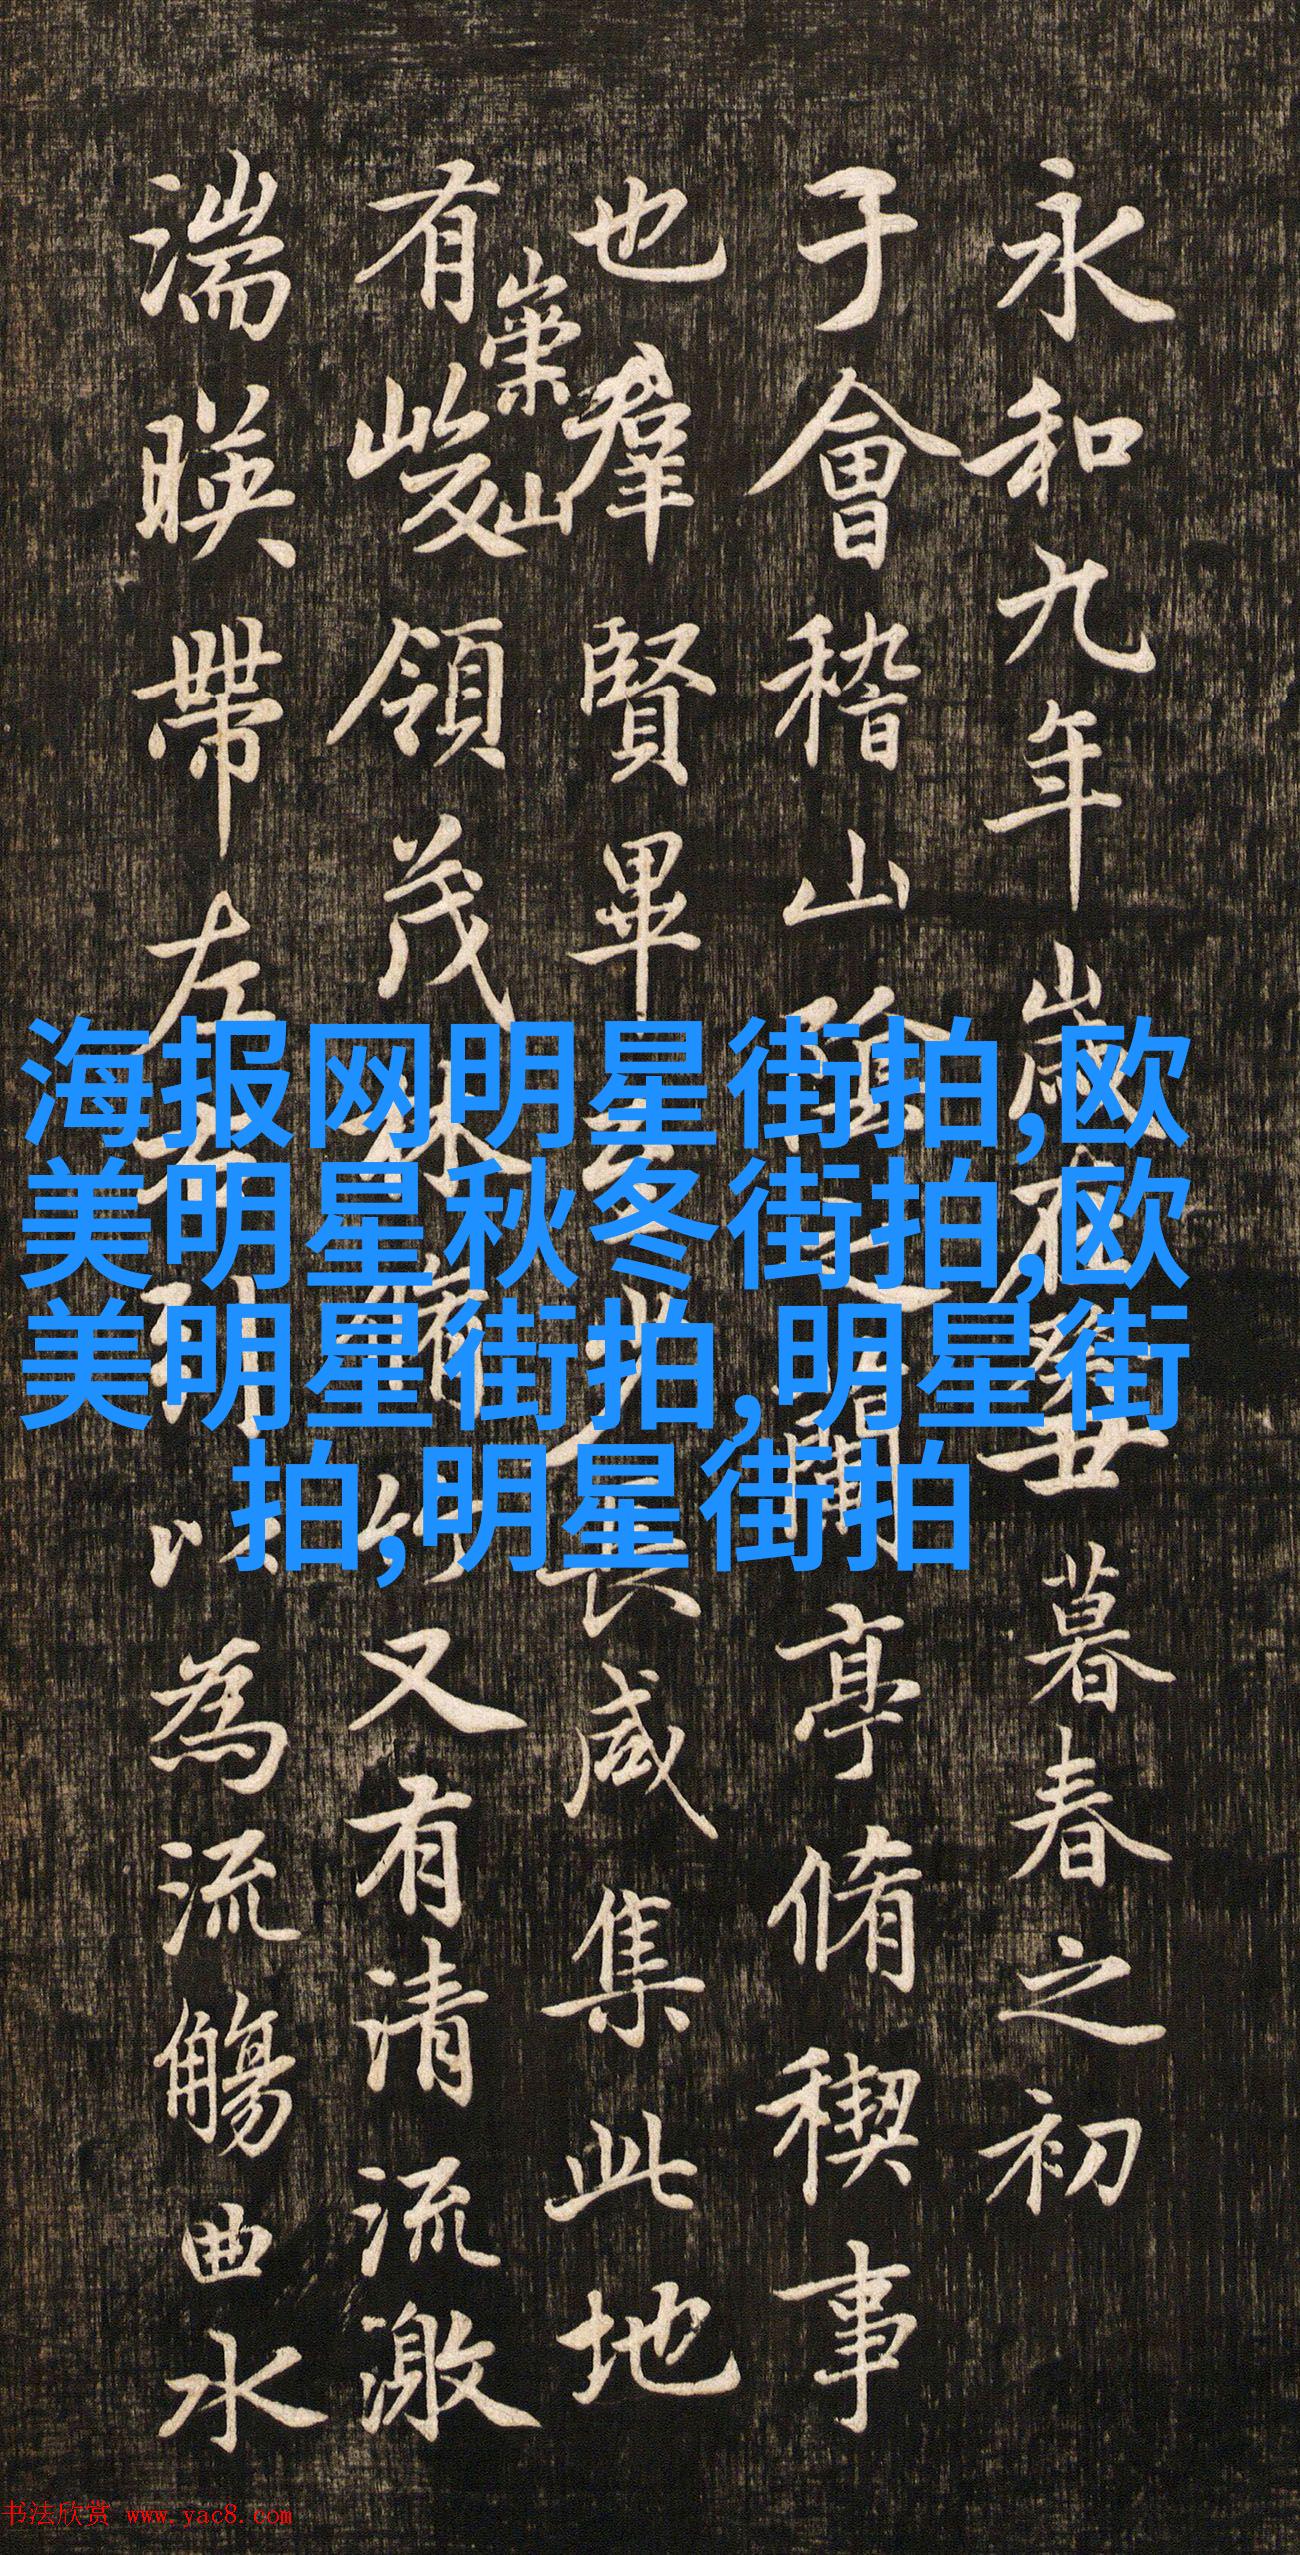 永和九年歲在癸丑暮春之初
于會稽山陰之蘭亭脩稧事
也羣賢畢至少長咸集此地
有崇山峻領茂林脩竹又有清流激
湍暎帶左右引以為流觴曲水
海报网明星街拍,欧
美明星秋冬街拍,欧
美明星街拍,明星街
拍,明星街拍
书法欣赏 www.yac8.com